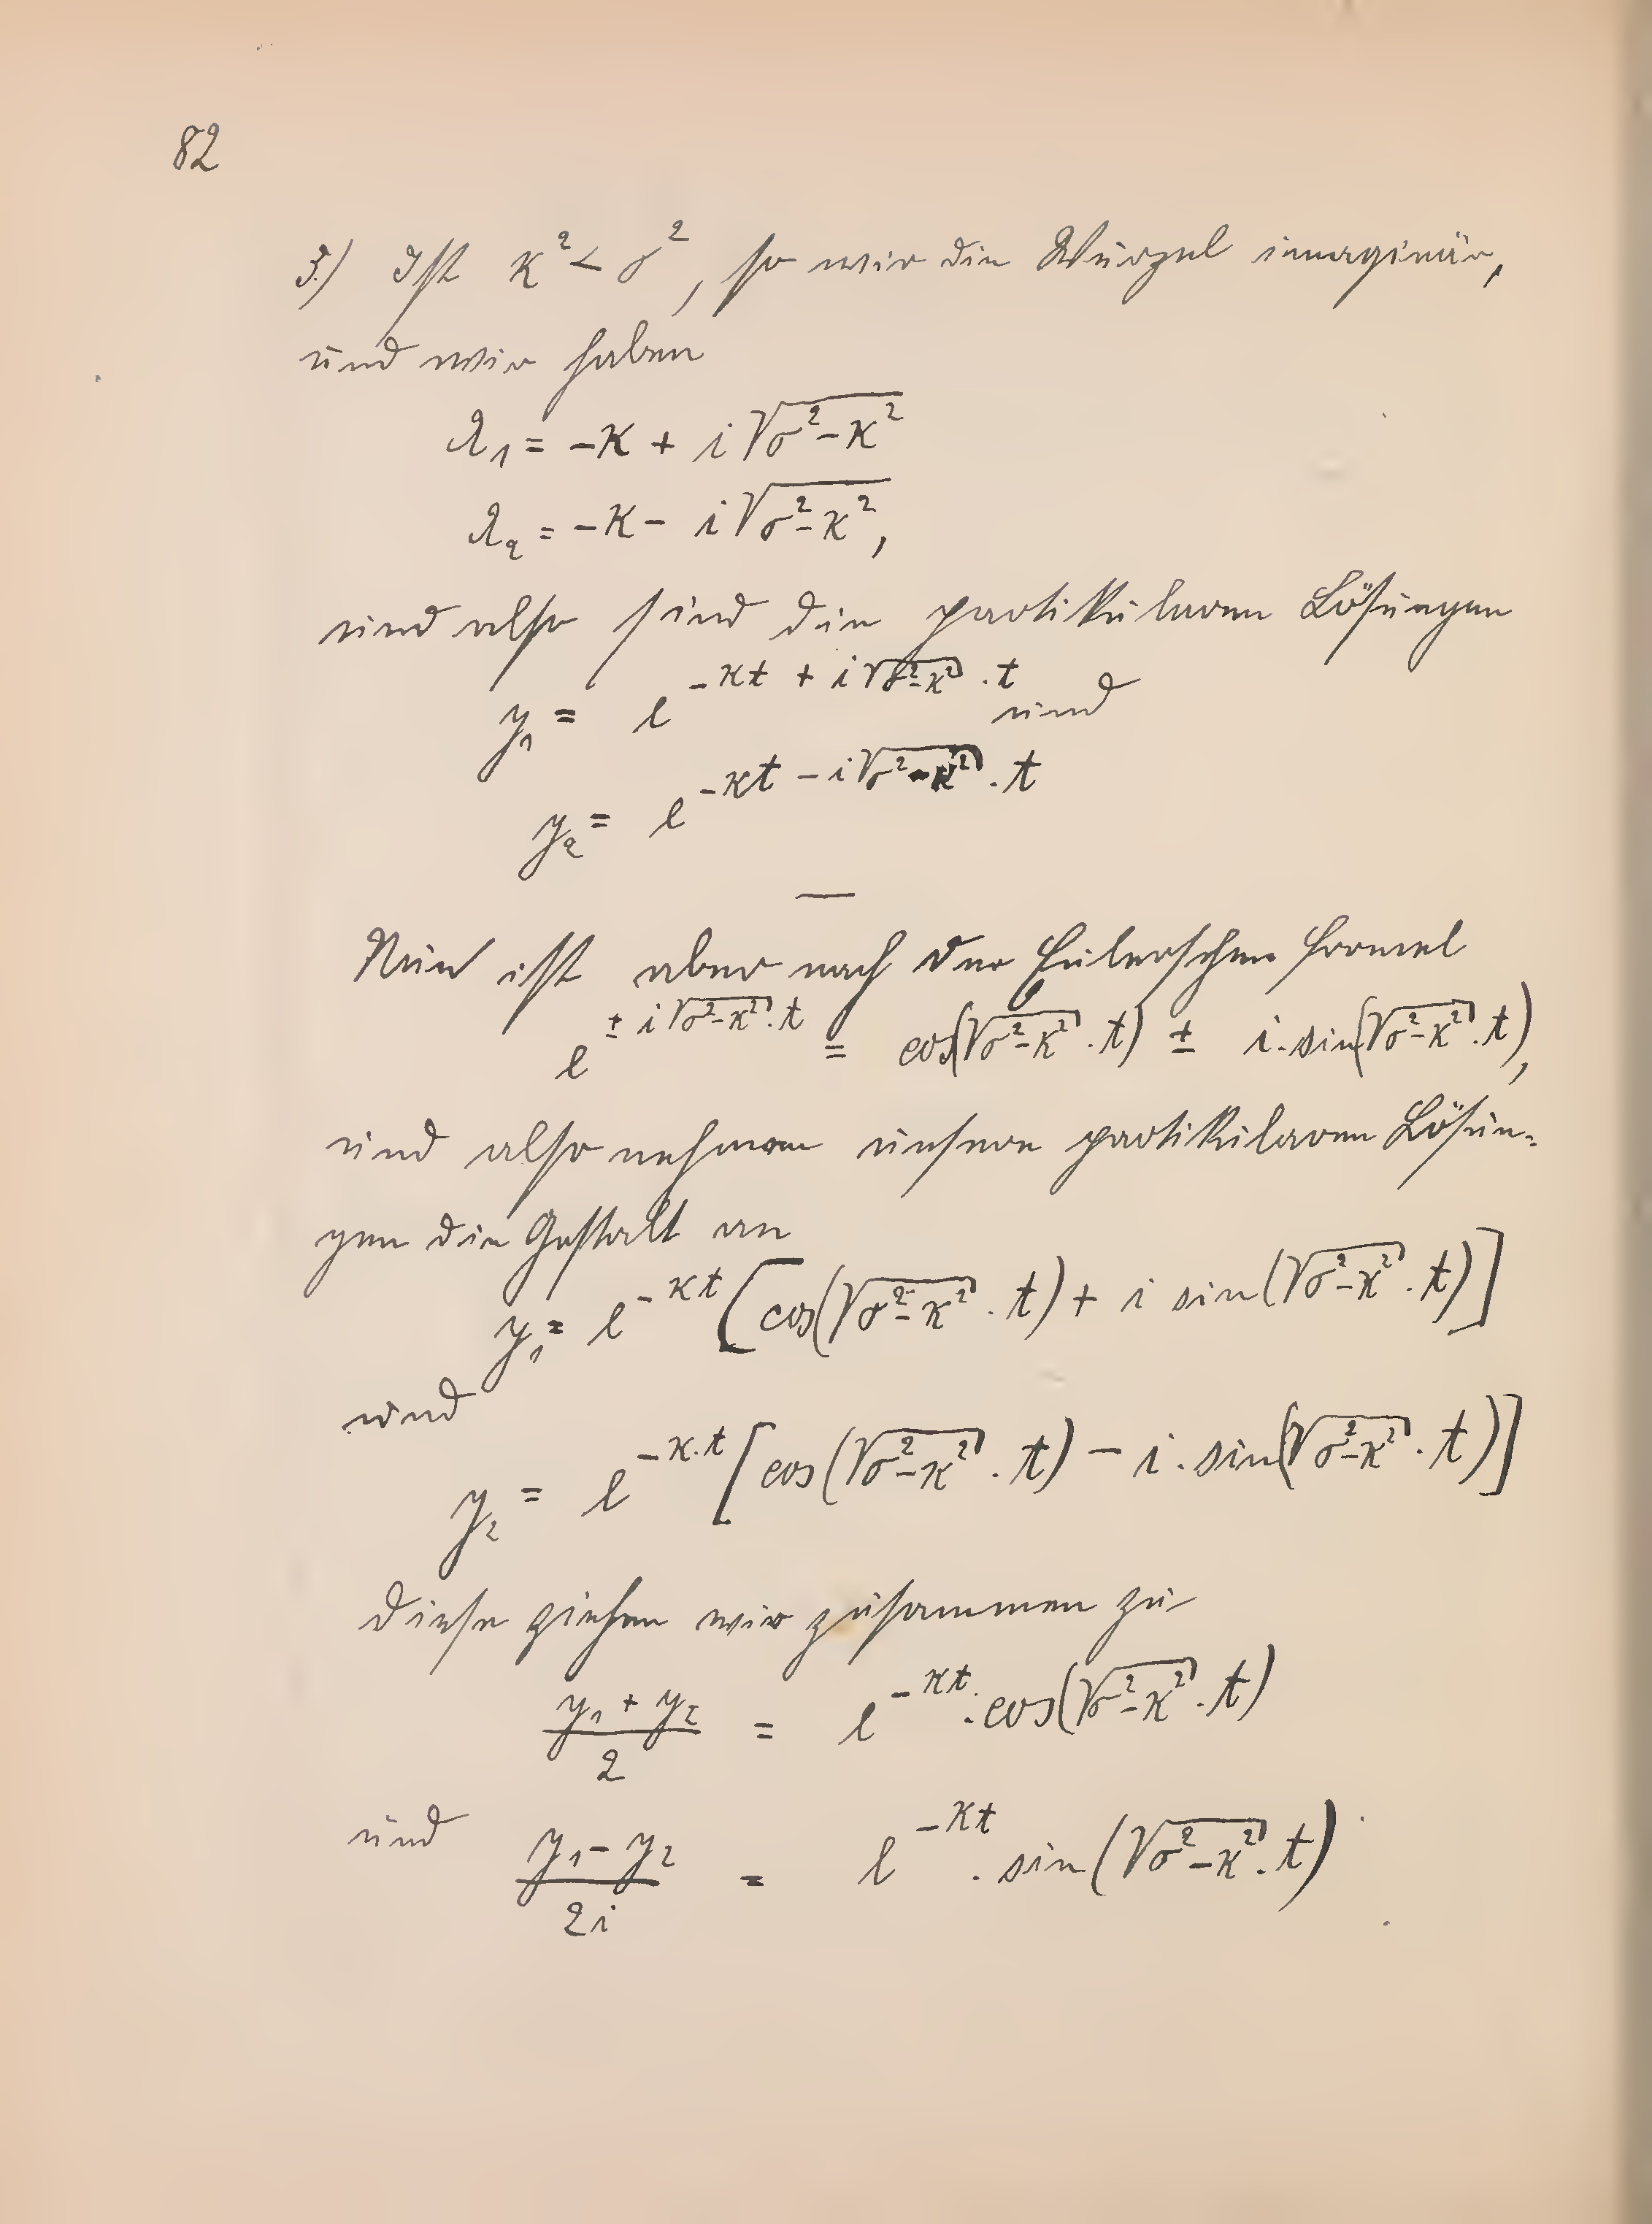 82
3.) Ist κ² < σ², so wir die Wurzel imaginär,
und wir haben
λ₁ = -κ + i √(σ²-κ²)
λ₂ = -κ - i √(σ²-κ²),
und also sind die partikularen Lösungen
y₁ = e^(-κt + i√(σ²-κ²) · t) und
y₂ = e^(-κt - i√(σ²-κ²) · t)
—
Nun ist aber nach der Eulerschen Formel
e^(± i √(σ²-κ²) · t) = cos(√(σ²-κ²) · t) ± i · sin(√(σ²-κ²) · t),
und also nehmen unsere partikularen Lösun-
gen die Gestalt an
y₁ = e^(-κt) [cos(√(σ²-κ²) · t) + i sin(√(σ²-κ²) · t)]
und
y₂ = e^(-κ·t) [cos(√(σ²-κ²) · t) - i · sin(√(σ²-κ²) · t)]
diese ziehen wir zusammen zu
(y₁ + y₂)/2 = e^(-κt) · cos(√(σ²-κ²) · t)
und (y₁ - y₂)/2i = e^(-κt) · sin(√(σ²-κ²) · t)